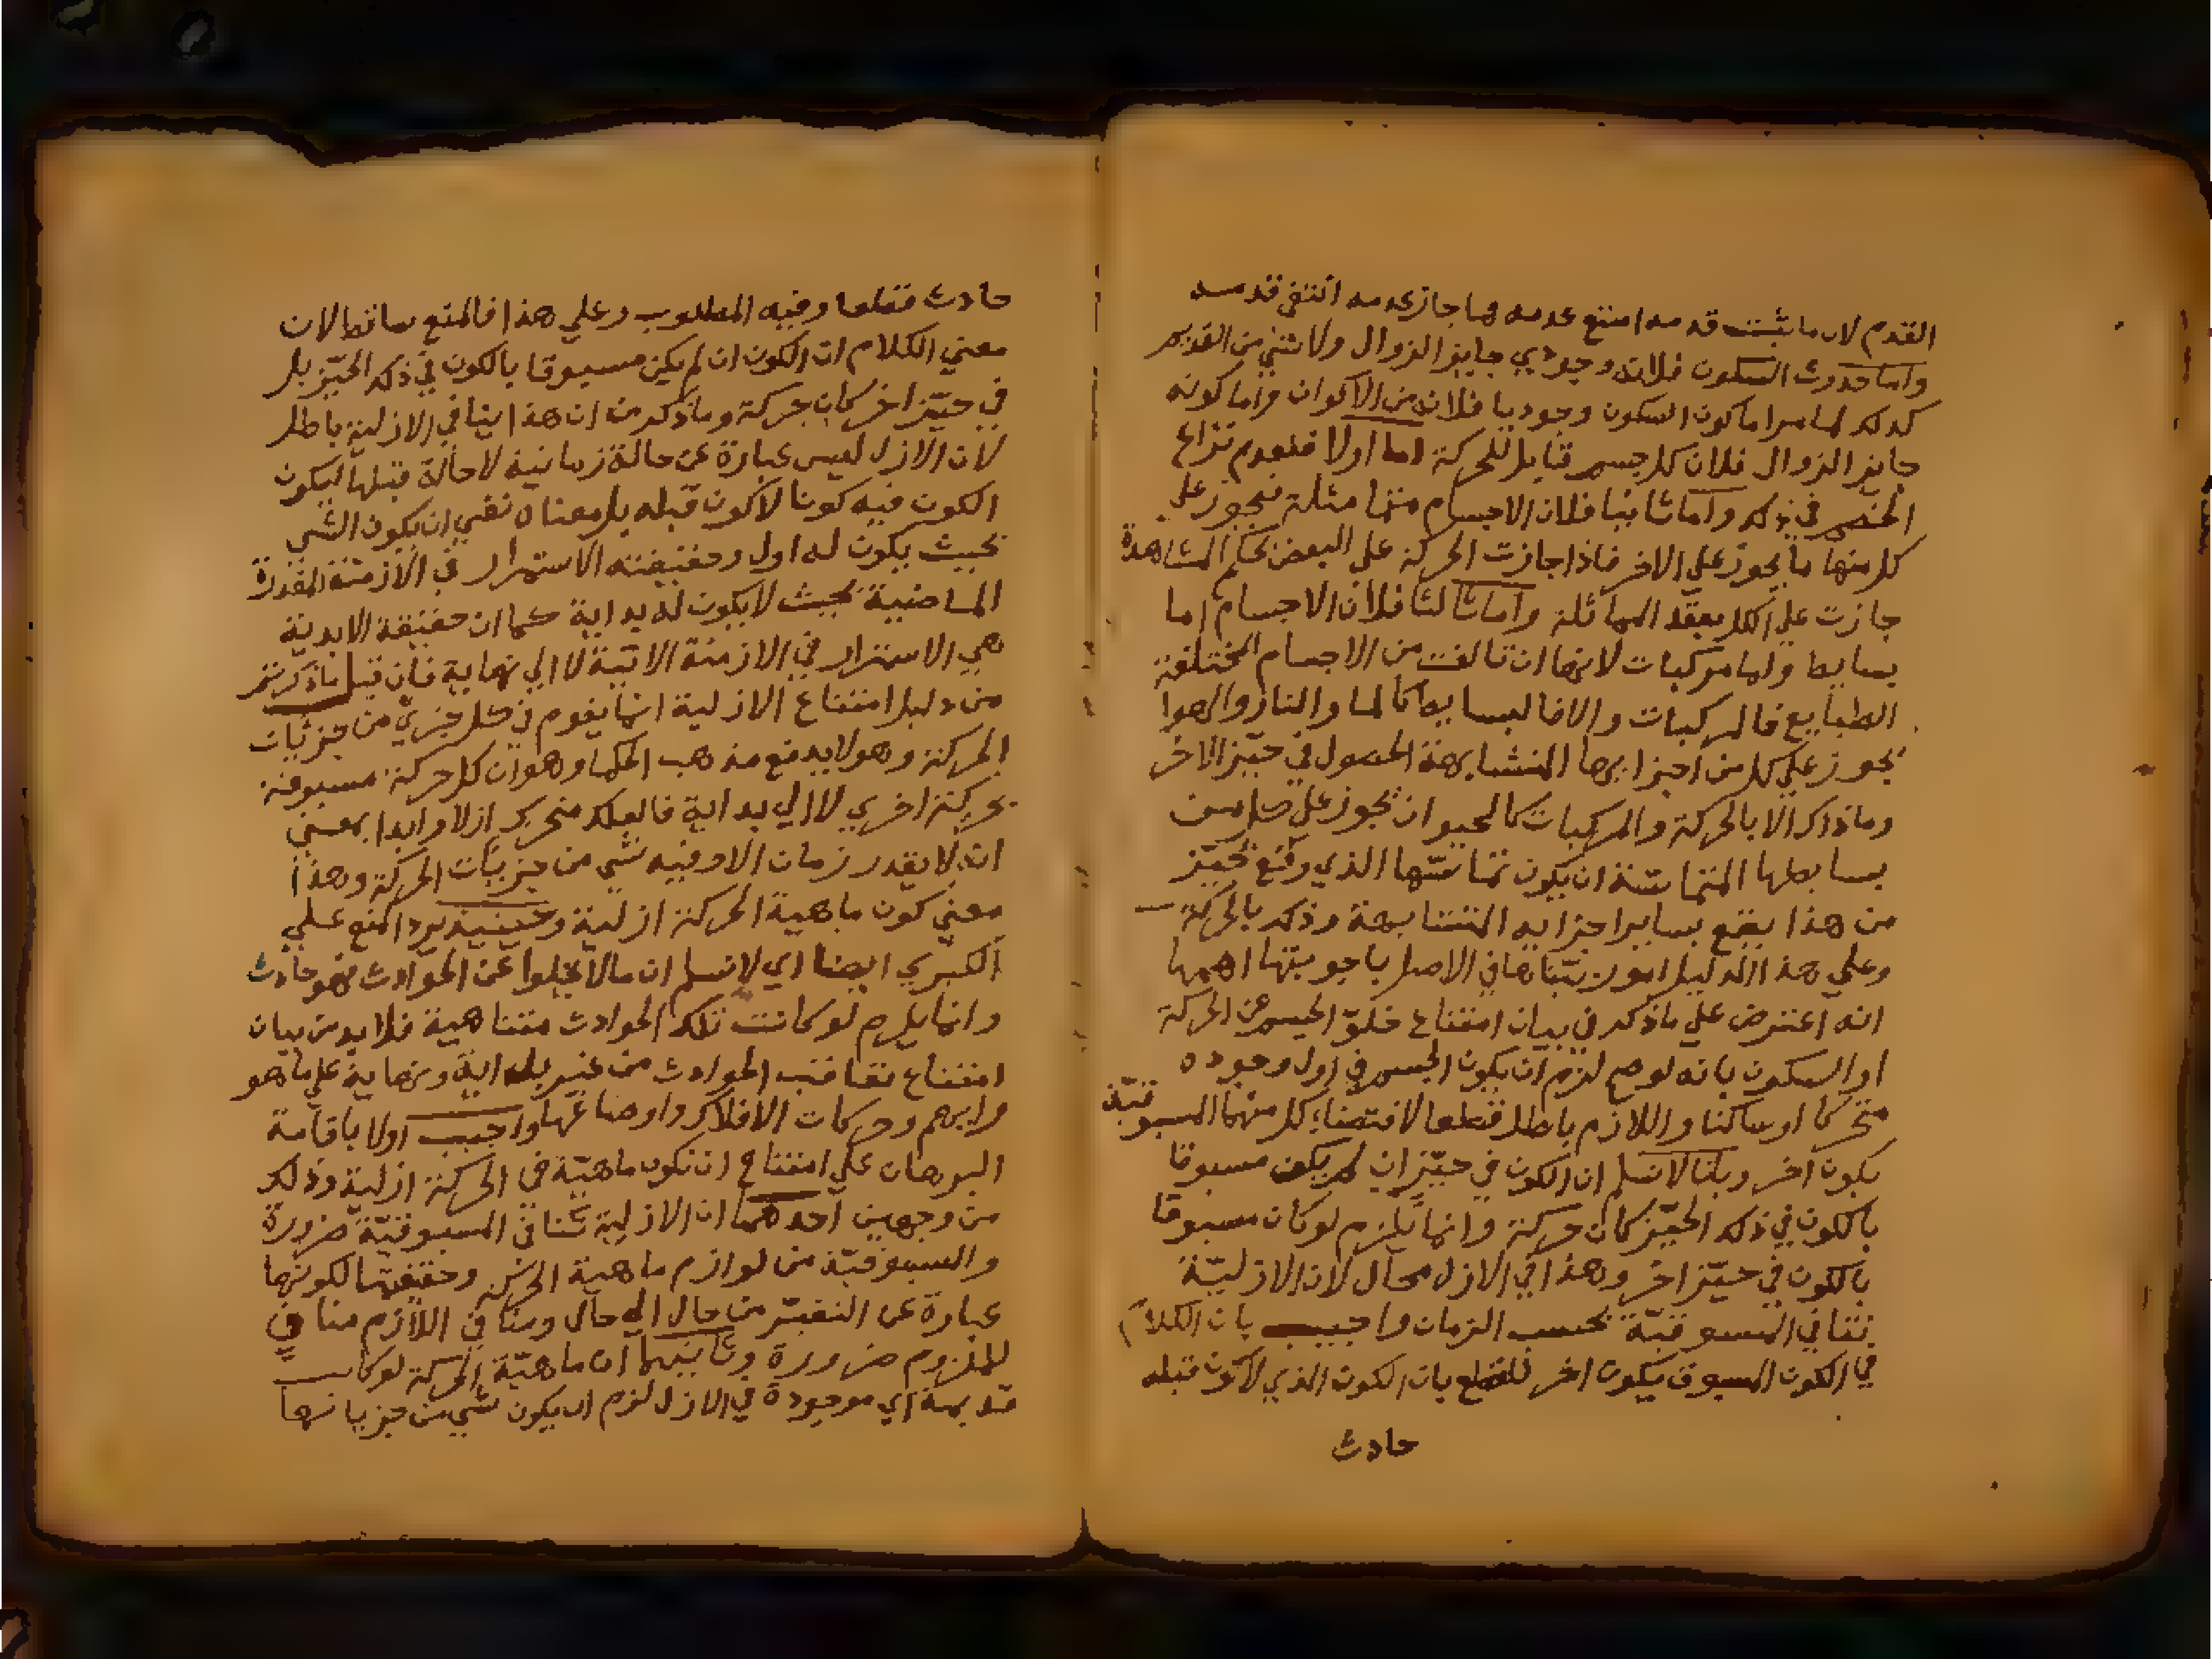 القدم لان ما ثبت قدمه امتنع عدمه فما جاز عدمه انتفي قدمه
واما حدوث السكون فلانه وجودي جايز الزوال ولا شي من القديم
كذلك لما مر اما كون السكون وجوديا فلانه من الاكوان واما كونه
جايز الزوال فلان كل جسم قابل للحركة اما اولا فلعدم نزاع
الخصم في ذلك واما ثانيا فلان الاجسام متماثلة فيجوز علي
كل منها ما يجوز علي الاخر فاذا جازت الحركة علي البعض بحكم المشاهدة
جازت علي الكل بعقد المماثلة واما ثالثا فلان الاجسام اما
بسايط واما مركبات لانها ان تالفت من الاجسام المختلفة
الطبايع فالمركبات والا فالبسايط كالما والنار والهوا
يجوز علي كل من اجزايها المتشابهة الحصول في حيز الاخر
وما ذاك الا بالحركة والمركبات كالحيوان يجوز علي كل من
بسايطها المتماسة ان يكون تماسها الذي وقع بحيز
من هذا يقع بساير اجزايه المتشابهة وذلك بالحركة
وعلي هذا الدليل امور بيناها في الاصل باجوبتها اهمها
انه اعترض علي ما ذكر في بيان امتناع خلو الجسم عن الحركة
او السكون بانه لو صح لزم ان يكون الجسم في اول وجوده
متحركا او ساكنا واللازم باطل قطعا لاقتضاء كل منهما المسبوقية
بكون اخر وبانا لا نسلم ان الكون في حيز ان لم يكن مسبوقا
بالكون في ذلك الحيز كان حركة وانما يلزم لو كان مسبوقا
بالكون في حيز اخر وهذا في الازل محال لان الازلية
تنافي المسبوقية بحسب الزمان واجيب بان الكلام
في الكون المسبوق بكون اخر للقطع بان الكون الذي لا كون قبله
حادث
حادث قطعا وفيه المطلوب وعلي هذا فالمنع ساقط لان
معني الكلام ان الكون ان لم يكن مسبوقا بالكون في ذلك الحيز بل
في حيز اخر كان حركة وما ذكر من ان هذا ينافي الازلية باطل
لان الازل ليس عبارة عن حالة زمانية لا حالة قبلها ليكون
الكون فيه كونا لا كون قبله بل معناه نفي ان يكون الشي
بحيث يكون له اول وحقيقته الاستمرار في الازمنة المقدرة
الماضية بحيث لا يكون له بداية كما ان حقيقة الابدية
هي الاستمرار في الازمنة الاتية لا الي نهاية فان قيل ما ذكرتم
من دليل امتناع الازلية انما يقوم في كل جزي من جزئيات
الحركة وهو لا يدفع مذهب الحكما وهو ان كل حركة مسبوقة
بحركة اخري لا الي بداية فالفلك متحرك ازلا وابدا بمعني
ان لا يقدر زمان الا وفيه شي من جزئيات الحركة وهذا
معني كون ماهية الحركة ازلية وحينيذ يرد المنع علي
الكبري ايضا اي لا نسلم ان ما لا يخلوا عن الحوادث فهو حادث
وانما يلزم لو كانت تلك الحوادث متناهية فلا بد من بيان
امتناع تعاقب الحوادث من غير بداية ونهاية علي ما هو
رايهم وحركات الافلاك واوضاعها واجيب اولا باقامة
البرهان علي امتناع ان تكون ماهية في الحركة ازلية وذلك
من وجهين احدهما ان الازلية تنافي المسبوقية ضرورة
والمسبوقية من لوازم ماهية الحركة وحقيقتها لكونها
عبارة عن التغير من حال الي حال ومنافي اللازم منافي
للملزوم ضرورة وثانيهما ان ماهية الحركة لو كانت
قديمة اي موجودة في الازل لزم ان يكون شي من جزيياتها